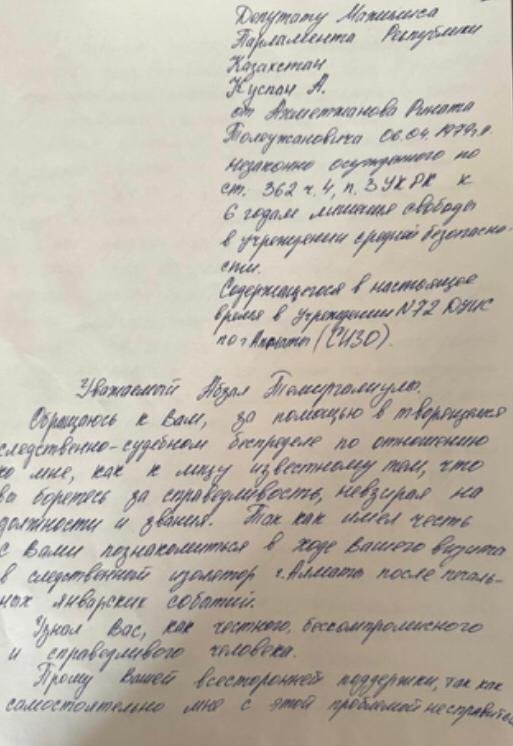 Депутату Мажилиса
Парламента Республики
Казахстан
Куспан А.
от Ахметжанова Рината
Толеужановича 06.04.1979г.р.
незаконно осужденного по
ст. 362 ч.4, п.3 УК РК к
6 годам лишения свободы
в учреждении средней безопасно-
сти.
Содержащегося в настоящее
время в учреждении №72 ДУИС
по г Алматы (СИЗО).
Уважаемый Абзал
Обращаюсь к Вам, за помощью в творящемся
следственно-судебном беспределе по отношению
ко мне, как к лицу известному тем, что
вы боретесь за справедливость, невзирая на
должности и звания. Так как имел честь
с Вами познакомиться в ходе Вашего визита
в следственный изолятор г.Алматы после печаль-
ных январских событий.
Узнал Вас, как честного, бескомпромисного
и справедливого человека.
Прошу Вашей всесторонней поддержки, так как
самостоятельно мне с этой проблемой несправится